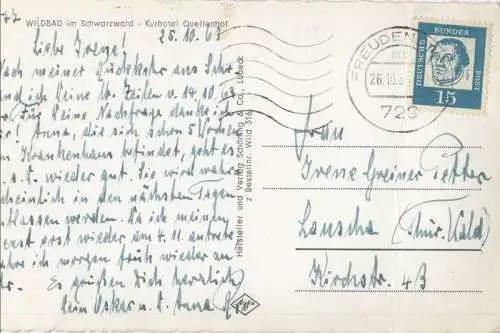 WILDBAD im Schwarzwald - Kurhotel Quellenhof
25.10.63
Liebe Irene!
Nach meiner Rückkehr aus
ich Deine lb. Zeilen v. 14.10.63
Für Deine Nachfrage danke ich
Anna, die sich schon 5 Wochen
Krankenhaus befindet, geht es
wieder gut. Sie wird wahr
scheinlich in den nächsten Tagen
entlassen werden. Da ich meinen
erst wieder am 4.11. antrete
ich morgen früh wieder
Es grüßen Dich herzlich
Dein Oskar u. Anna
Hersteller und Verlag Schöning & Co., Lübeck
Bestellnr. Wild 316
FREUDEN
26.10.6
723
DEUTSCHE BUNDESPOST
15
Frau
Irene Greiner Petter
Lauscha /Thür. Wald/
Kirchstr. 43